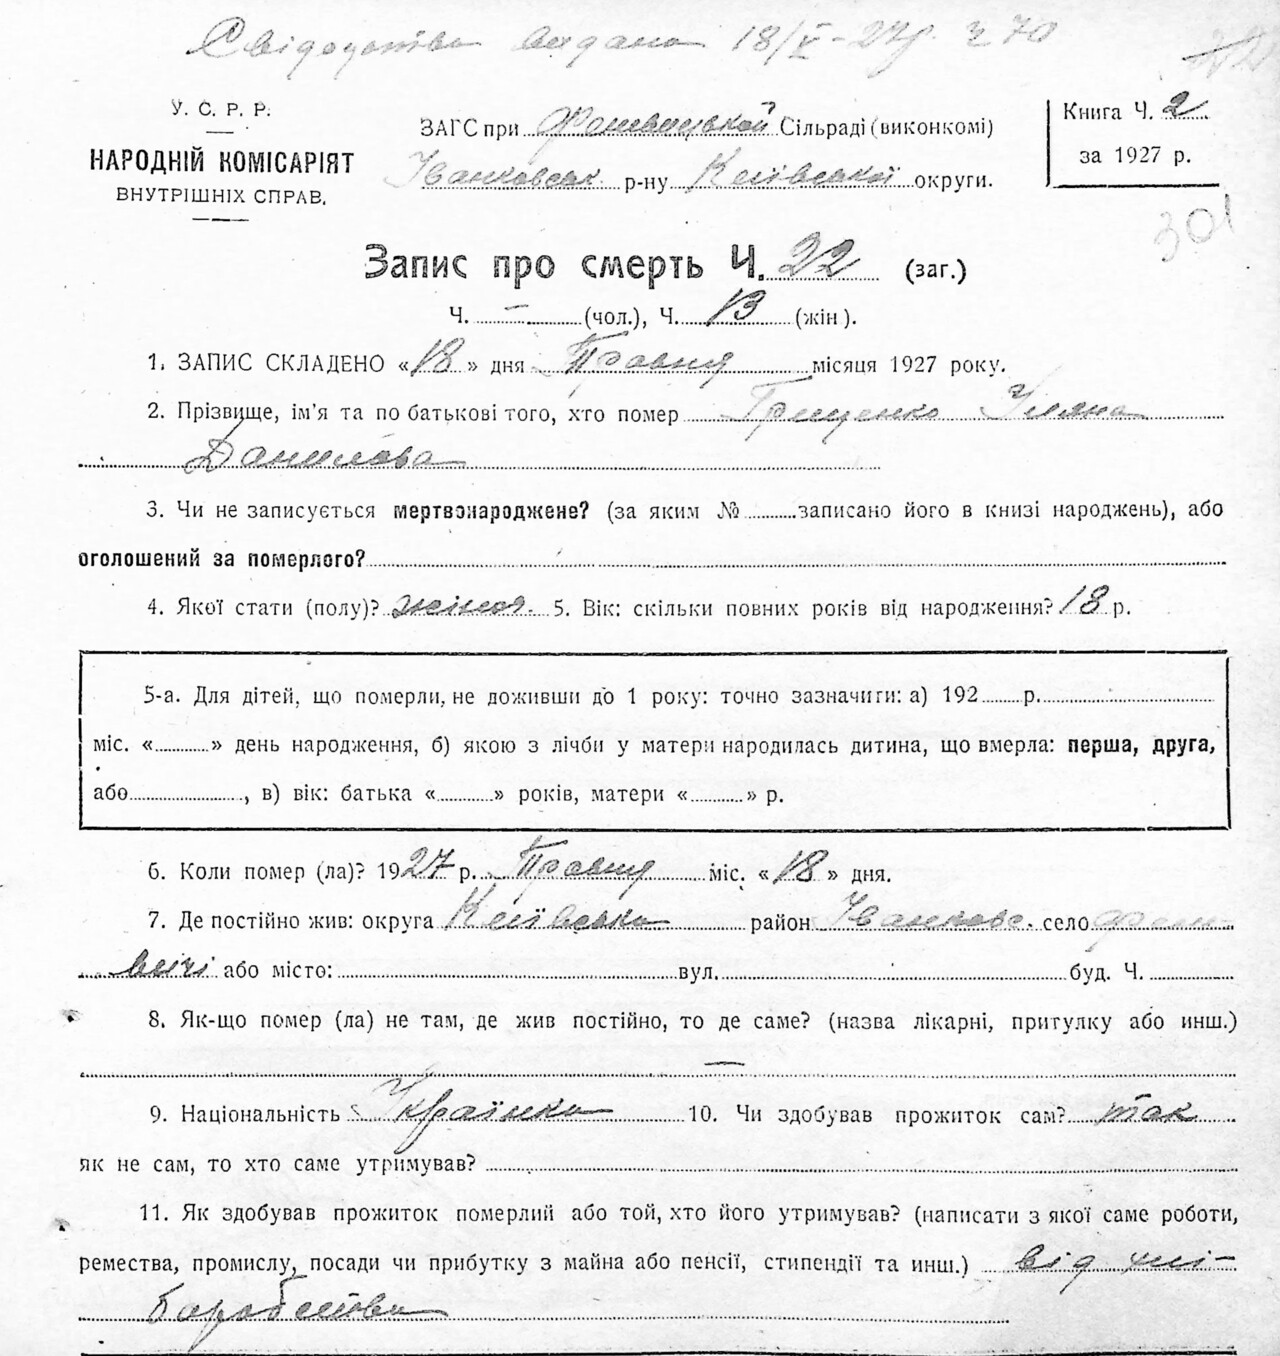 Свідоцтво видано 18/V-27р. ч 70
У. С. Р. Р.
НАРОДНІЙ КОМІСАРІЯТ
ВНУТРІШНІХ СПРАВ.
ЗАГС при Феневицькой Сільраді (виконкомі)
Іванковськ. р-ну Київської округи.
Книга Ч. 2.
за 1927 р.
301
Запис про смерть Ч. 22 (заг.)
Ч. — (чол.), Ч. 13 (жін).
1. ЗАПИС СКЛАДЕНО «18» дня Травня місяця 1927 року.
2. Прізвище, ім'я та по батькові того, хто помер Грищенко Уляна
Данилова
3. Чи не записується мертвонароджене? (за яким № записано його в книзі народжень), або
оголошений за померлого?
4. Якої стати (полу)? жіноч. 5. Вік: скільки повних років від народження? 18 р.
5-а. Для дітей, що померли, не доживши до 1 року: точно зазначити: а) 192 р.
міс. « » день народження, б) якою з лічби у матери народилась дитина, що вмерла: перша, друга,
або , в) вік: батька « » років, матери « » р.
6. Коли помер (ла)? 1927 р. Травня міс. «18» дня.
7. Де постійно жив: округа Київська район Іванковс. село Фене-
вичі або місто: вул. буд. Ч.
8. Як-що помер (ла) не там, де жив постійно, то де саме? (назва лікарні, притулку або инш.)
—
9. Національність Українка 10. Чи здобував прожиток сам? так
як не сам, то хто саме утримував?
11. Як здобував прожиток померлий або той, хто його утримував? (написати з якої саме роботи,
ремества, промислу, посади чи прибутку з майна або пенсії, стипендії та инш.) від хлі-
боробства